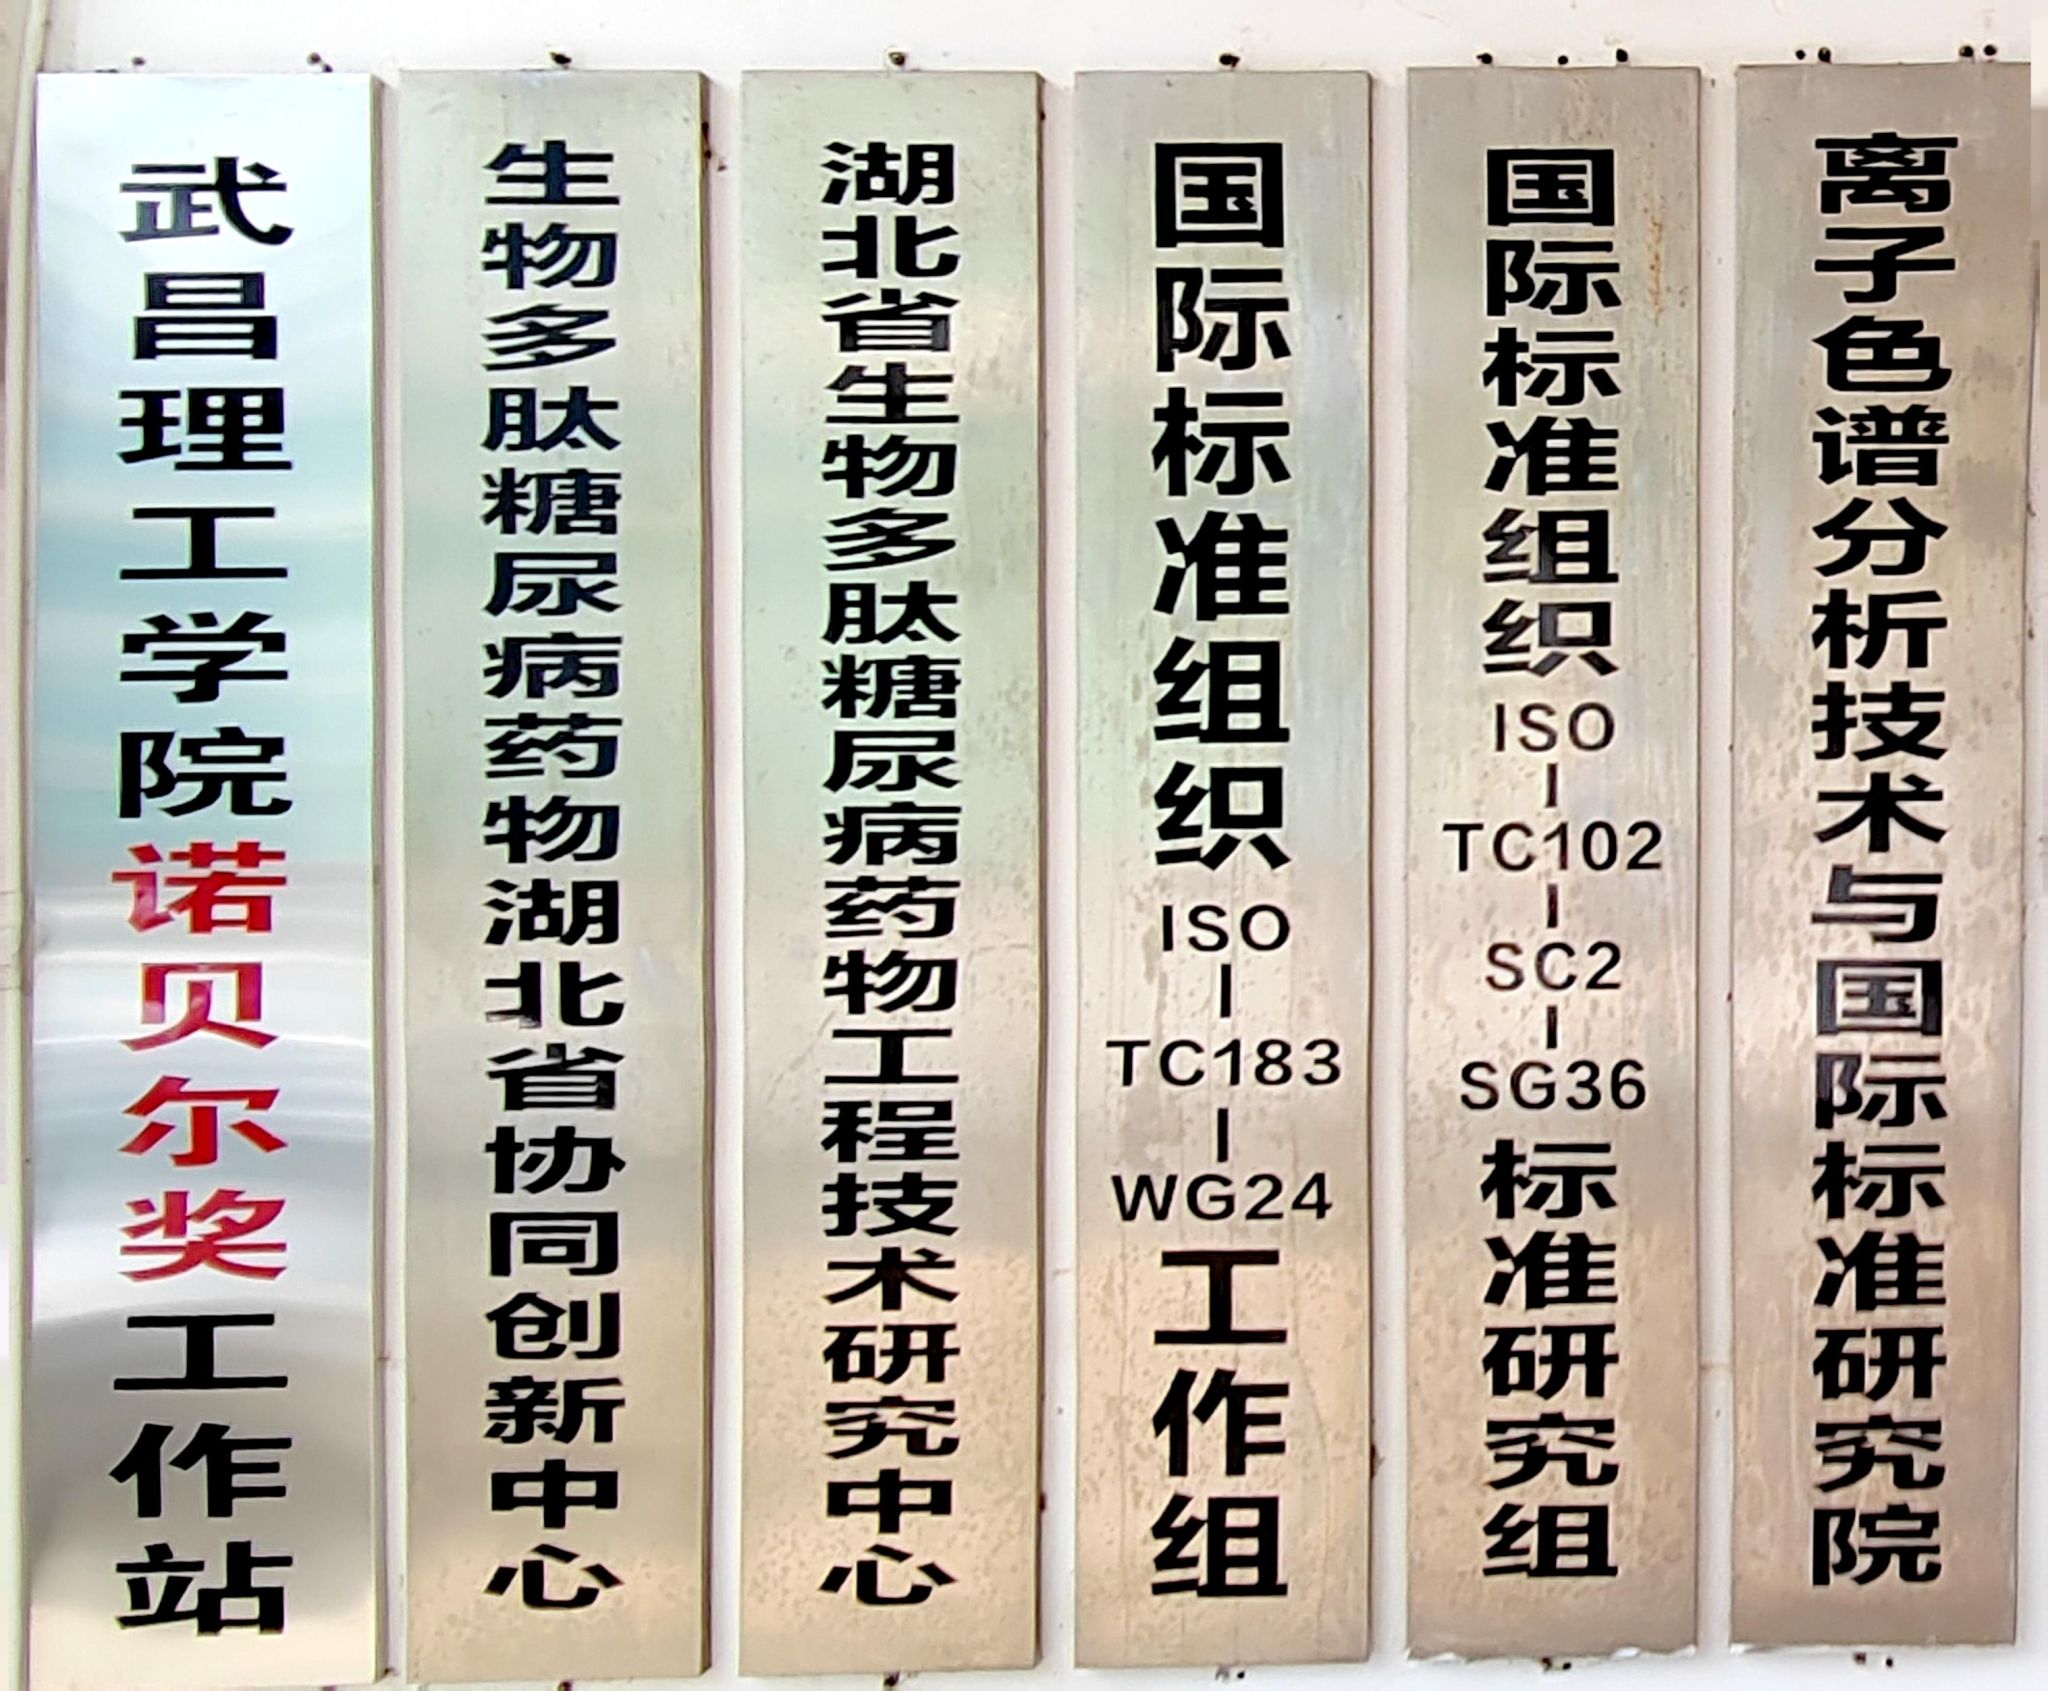 武昌理工学院诺贝尔奖工作站
生物多肽糖尿病药物湖北省协同创新中心
湖北省生物多肽糖尿病药物工程技术研究中心
国际标准组织ISO-TC183-WG24工作组
国际标准组织ISO-TC102-SC2-SG36标准研究组
离子色谱分析技术与国际标准研究院